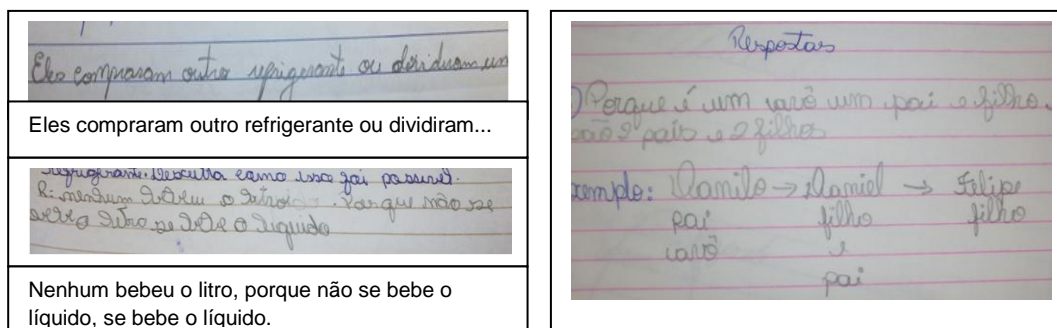 Eles compraram outro refrigerante ou dividiram um
Eles compraram outro refrigerante ou dividiram...
refrigerante. Descubra como isso foi possivel.
R: nenhum bebeu o litro. Porque não se
bebe o litro se bebe o liquido
Nenhum bebeu o litro, porque não se bebe o
líquido, se bebe o líquido.
Respostas
) Porque é um vavô um pai e filho.
são 2 pais e 2 filhos
xemplo: Danilo → Daniel → Felipe
pai filho filho
vavô e
pai